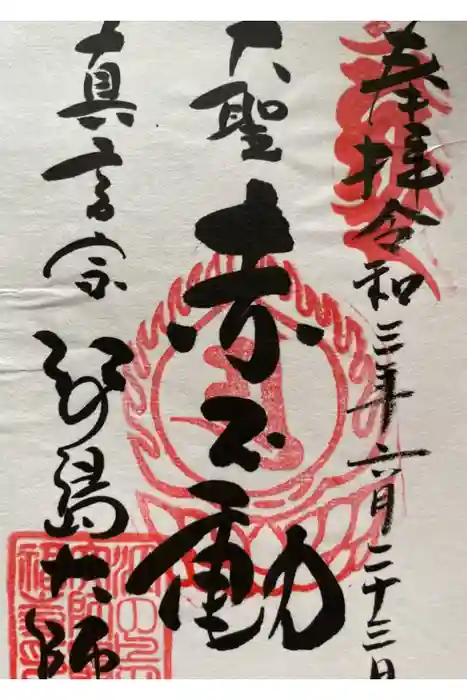 奉拝 令和三年六月二十三日
大聖 赤不動
真言宗 江の島大師